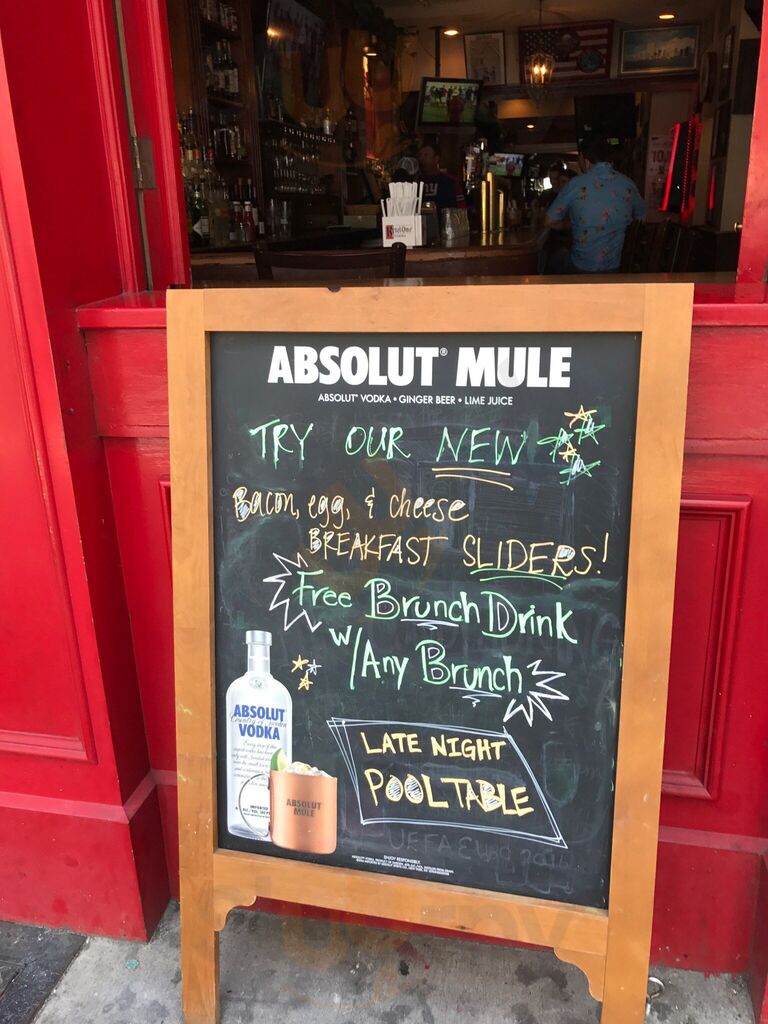 ABSOLUT® MULE
ABSOLUT® VODKA • GINGER BEER • LIME JUICE
TRY OUR NEW
Bacon, egg, & cheese
BREAKFAST SLIDERS!
Free Brunch Drink
w/Any Brunch
ABSOLUT
Country of Sweden
VODKA
ABSOLUT
MULE
LATE NIGHT
POOLTABLE
ENJOY RESPONSIBLY.